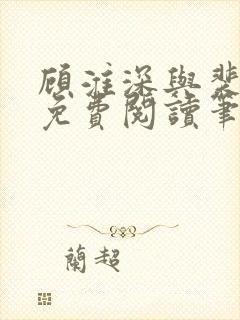 顾淮深與裴
免費閱讀筆
蘭超